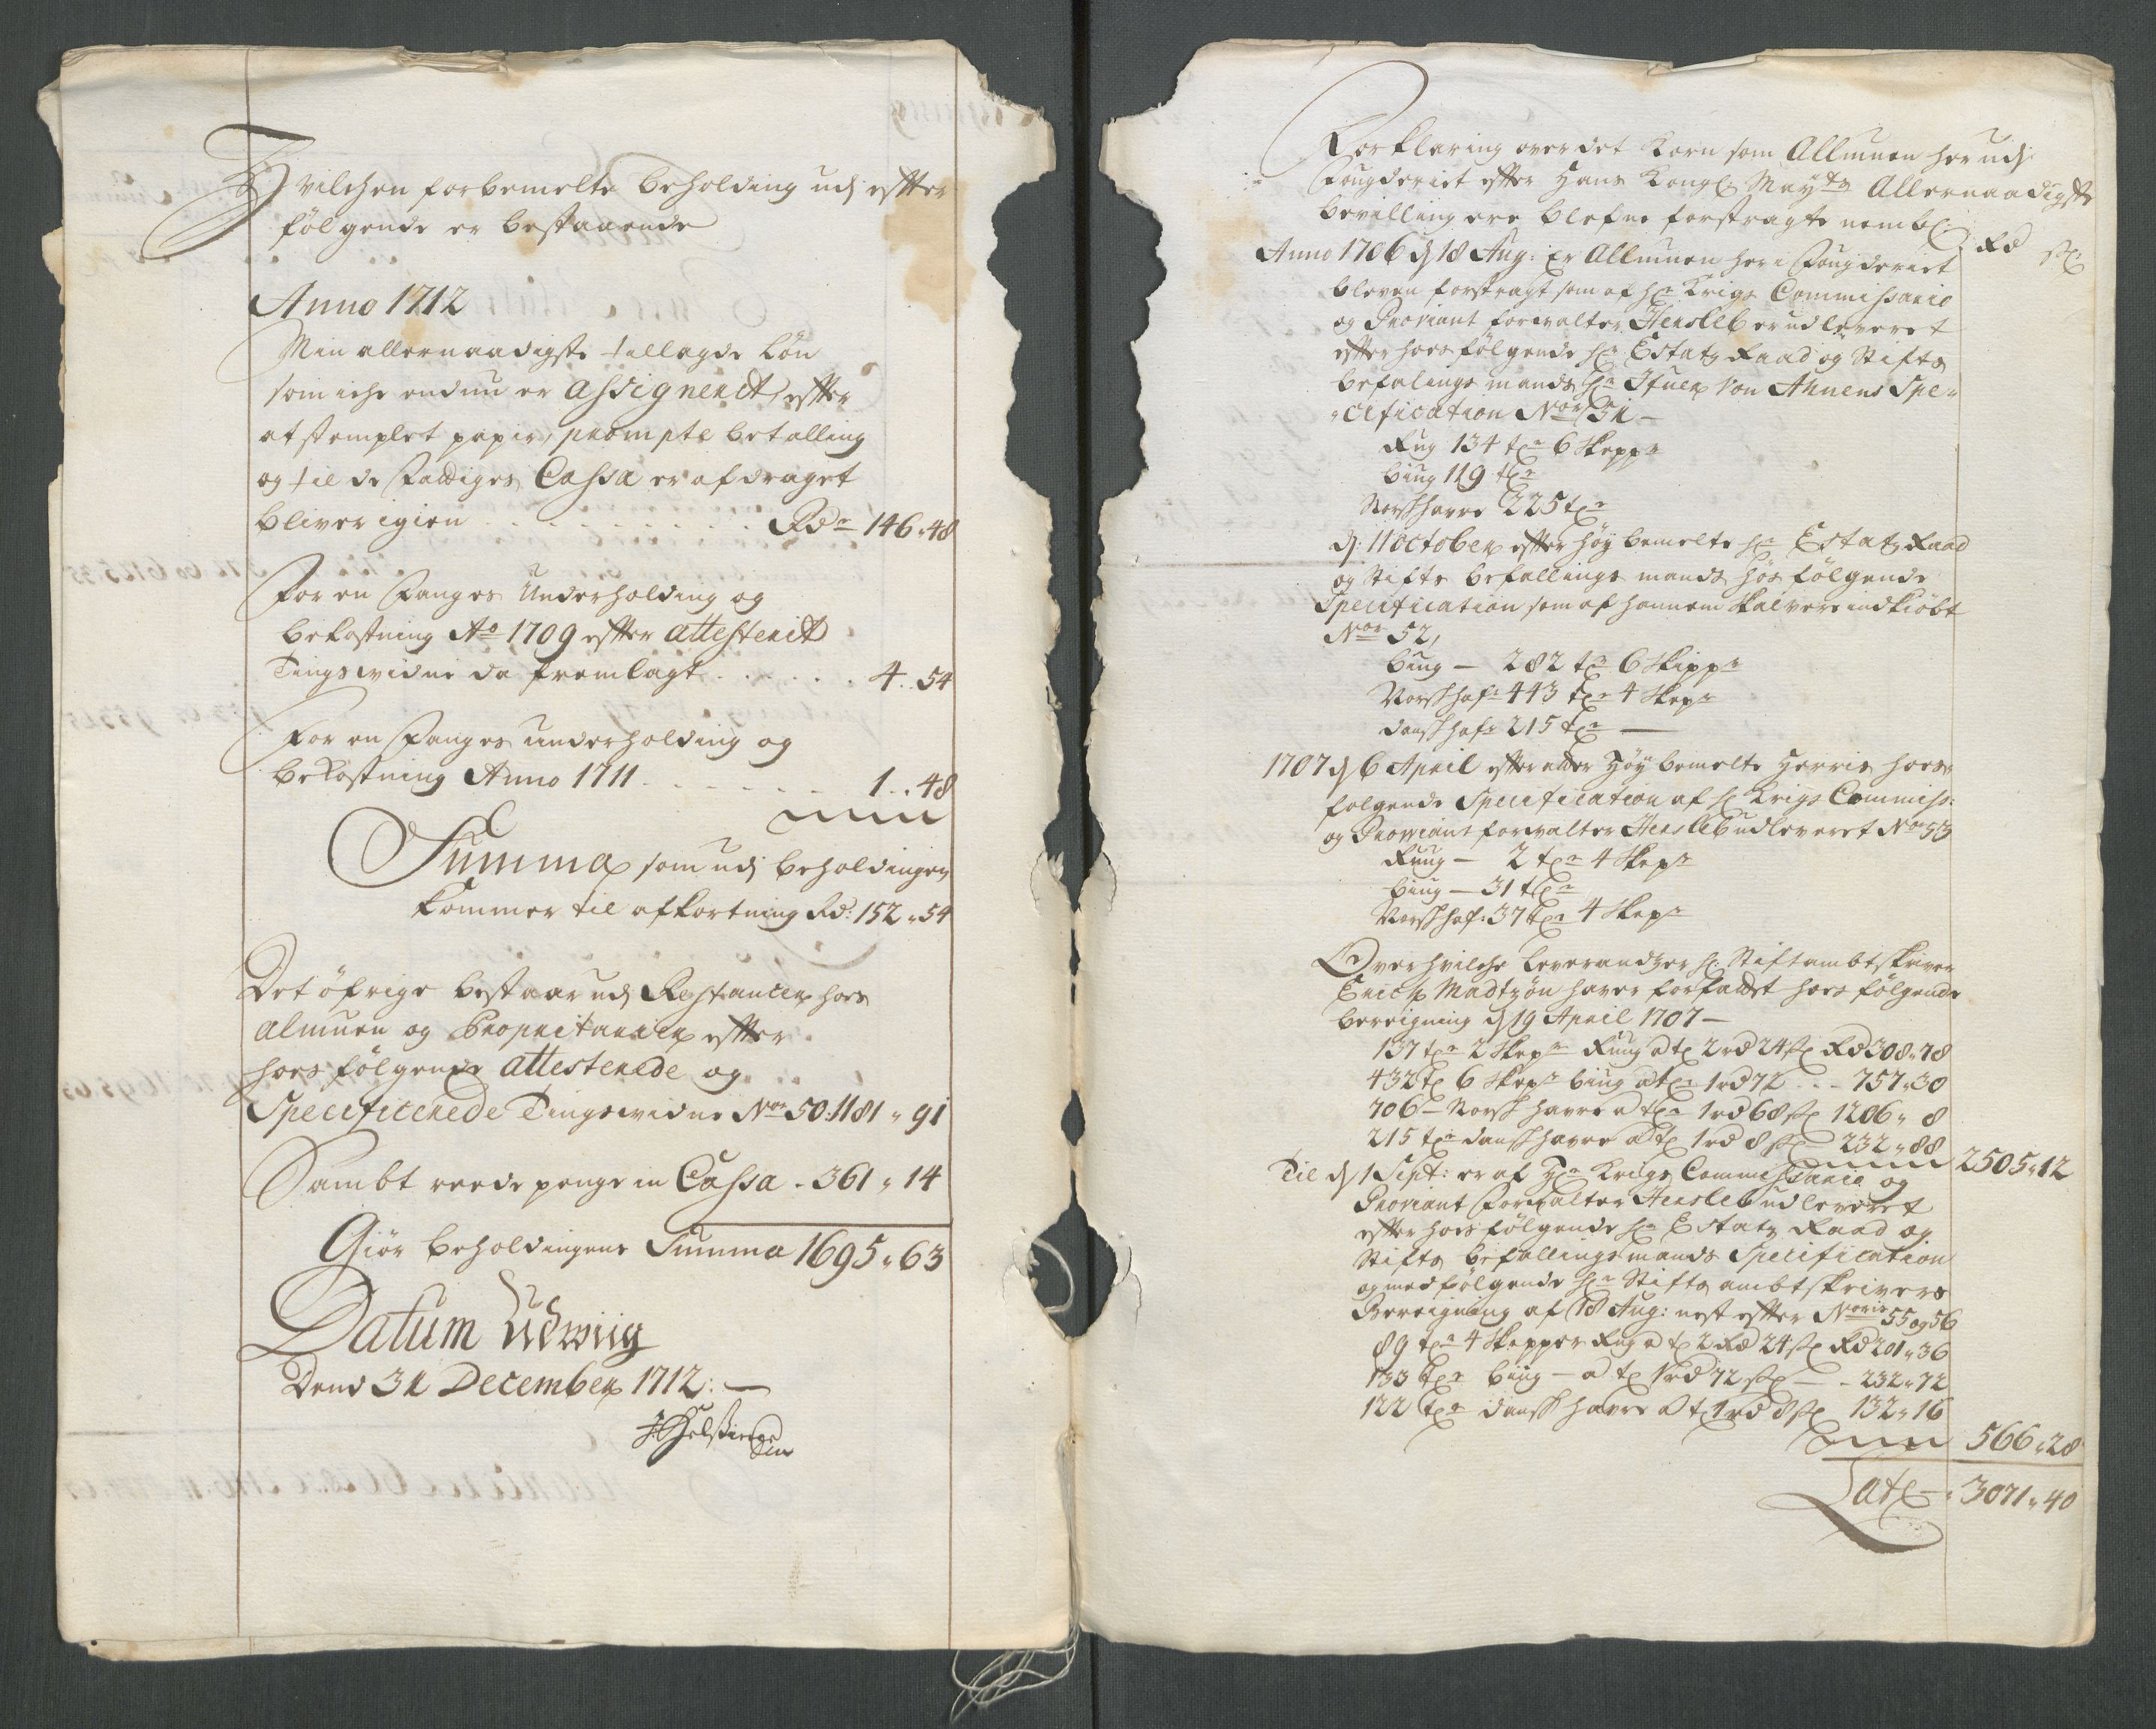 Hvilchen forbemelte beholding udj effter
följgende er bestaaende
Anno 1712
Min allernaadigste tillagde Løn
som iche endnu er Assigneret, effter
at stemplet papir, prompte betalling
og til de Fattiges Cassa er afdraget
bliver igien . . . . . . . . Rdr 146 „ 48
For en Fanges Underholding og
bekostning Ao 1709 effter attesterit
Tingsvidne da fremlagt . . . . . . 4 . . 54
For en Fanges underholding og
bekostning Anno 1711 . . . . . . 1 . . 48
Summa som udj beholdingen
kommer til afkortning Rd: 152 „ 54
Det öfrige bestaar udj Restancer hos
almuen og Proprietarier effter
hosfölgende attesterede og
Specificerede Tingsvidne Nor 50: 1181 „ 91
Sambt reede penge in Cassa - 361 „ 14
Giör beholdingens Summa 1695 „ 63
Datum Udwiig
Dend 31 December 1712: —
Forklaring over det Korn som Allmuen her udj
Fougderiet effter Hans Kongl: Mayts Allernaadigste
bevilling ere blefne forstragte nembl:
Rd ss:
Anno 1706 dj 18 Aug: Er Allmuen her i Fougderiet
bleven forstragt som af Hr Krigs Commissario
og Proviant forvalter Hersleb er udleveret
effter hosfölgende Hr Estatz Raad og Stifts
befalings mands Hr Ifuer Von Ahnens Spe-
cification Nor 51 —
Rug 134 tr 6 Skeppr
biug 119 tr
Norsk havre 225 tr
dj: 11 October effter höybemelte Hr Estatz Raad
og Stifts befallings mands hos fölgende
Specification som af hannem skal vere indkiöbt
Nor 52,
biug — 282 tr 6 Skippr
Norsk haf: 443 tr 4 Skepr
dansk haf: 215 tr —
1707 dj 6 April effter atter Höybemelte Herris hos-
følgende Specification af Hr Krigs Commiss:
og Proviantforvalter Hersleb udleveret Nor 53
Ruug — 2 tr 4 Skepr
biug — 31 tr
Norsk haf: 37 tr 4 Skepr
Over hvilche Leverandzer Hr. Stiftambtskriver
Erich Madtzön haver forfattet hos fölgende
beregning dj 19 April 1707 —
137 tr 2 Skepr Ruug a tr 2 rd 24 ss Rd 308 „ 78
432 tr 6 Skepr biug a tr 1 rd 72 . . - 757 „ 30
706 — Norsk havre a tr 1 rd 68 ss 1206 „ 8
215 tr dansk havre a tr 1 rd 8 ss 232 „ 88
2505 „ 12
Til dj 1 Sept: er af Hr Krigs Commissario og
Proviant Forvalter Hersleb udleveret
effter hosfölgende Hr Estatz Raad og
Stifts befallings mands Specification
og medfölgende Hr Stifts ambtskrivers
Beregning af 18 Aug: nest effter Noris 55 og 56
89 tr 4 Skepper Rug a tr 2 Rd 24 ss Rd 201 „ 36
133 tr biug — a tr 1 rd 72 ss — - 232 „ 72
122 tr dansk havre a tr 1 rd 8 ss 132 „ 16
566 „ 28
Late — 3071 „ 40